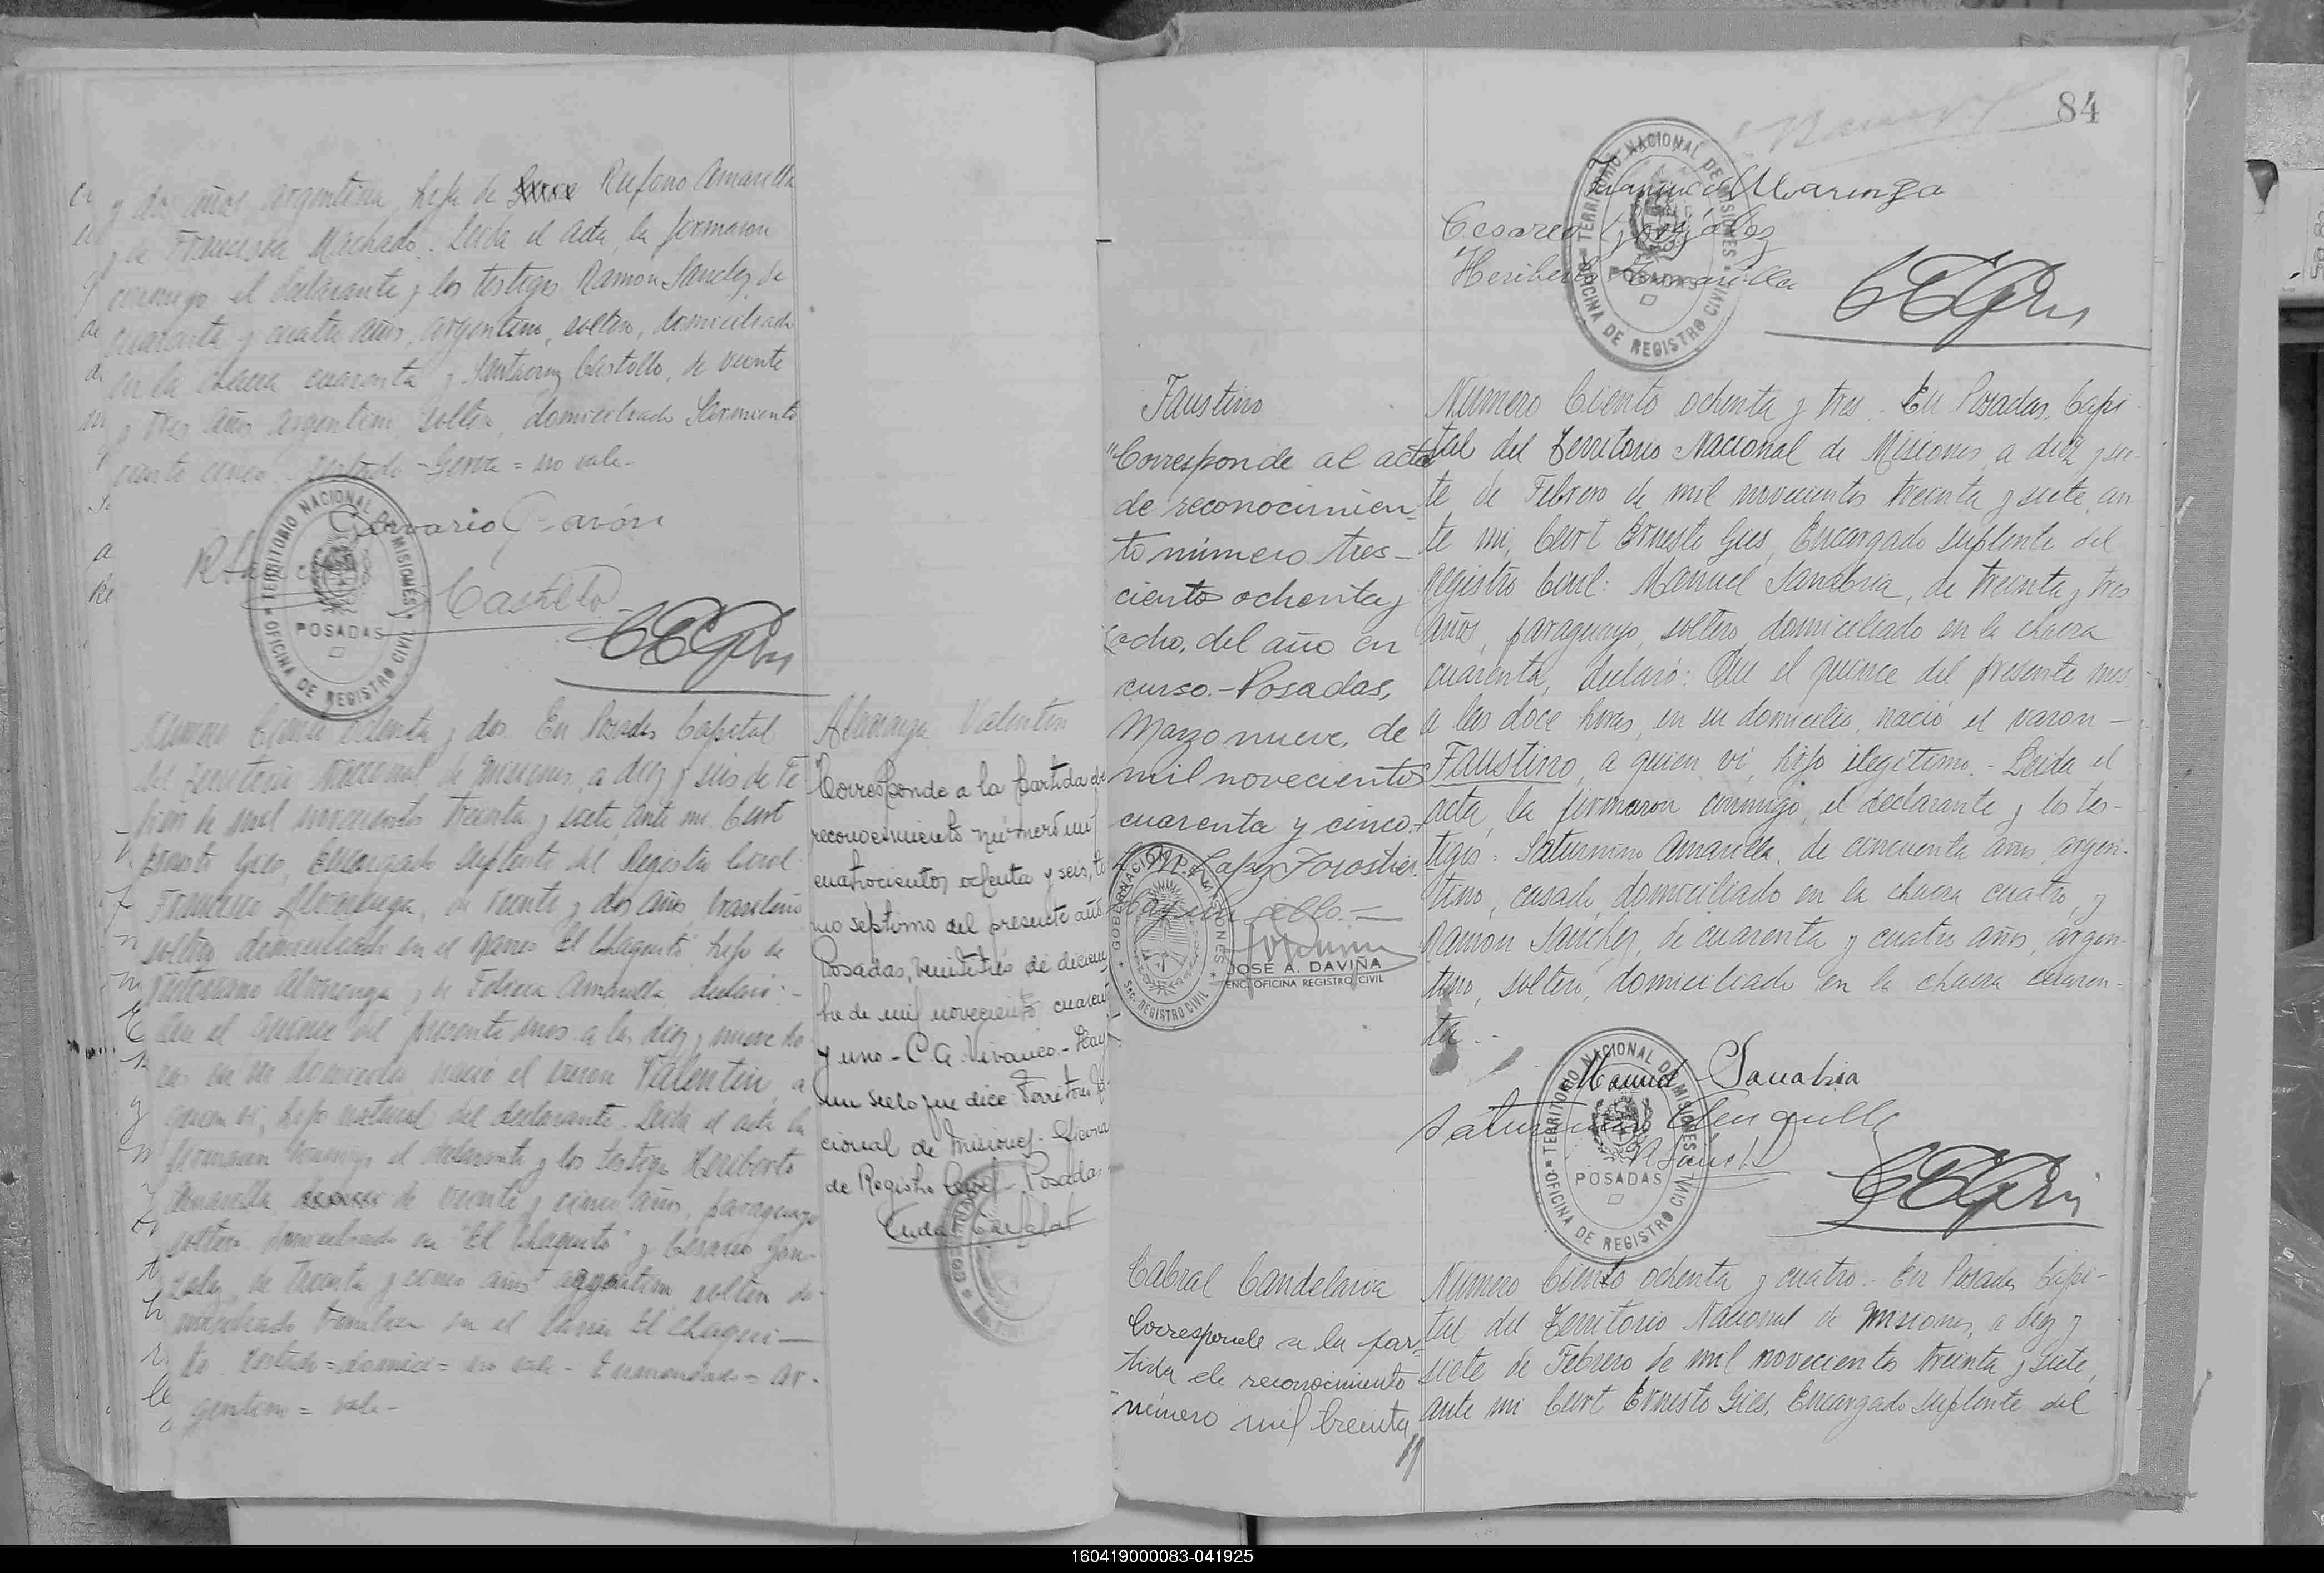 y dos años argentina, hija de Rufino Amarilla
y de Francisca Machado. Leida el acta, la firmaron
conmigo el declarante y los testigos Ramon Sanchez, de
cuarenta y cuatro años, argentino, soltero, domiciliado
en la chacra cuarenta y Castillo, de veinte
y tres años argentino, soltero, domiciliado Sarmiento
ciento cinco = no vale-
Gervacio Pavón
Castillo
TERRITORIO NACIONAL DE MISIONES
POSADAS
OFICINA DE REGISTRO CIVIL
Número Ciento ochenta y dos. En Posadas Capital
del Territorio Nacional de Misiones, a diez y seis de Fe
brero de mil novecientos treinta y siete, ante mi, Curt
Ernesto Gies, Encargado Suplente del Registro Civil:
Francisco Alvarenga, de veinte y dos años, brasileño
soltero, domiciliado en el "El Chaquito", hijo de
Alvarenga y de Amarilla, declaró:-
Que el quince del presente mes a las diez y nueve ho
ras en su domicilio, nació el varon Valentin, a
quien vi, hijo natural del declarante. Leida el acta la
firmaron conmigo el declarante y los testigos Heriberto
Amarilla de veinte y cinco años, paraguayo
soltero domiciliado en "El Chaquito" y Cesareo Gon-
zalez, de treinta y cinco años argentino soltero do-
miciliado tambien en el El Chaqui-
to. = no vale - Enmendado = ar-
gentino = vale-
Alvarenga Valentin
"Corresponde a la partida de
reconocimiento número mil
cuatrocientos ochenta y seis, to
mo septimo del presente año
Posadas, veintitres de diciem
bre de mil novecientos cuarenta
y uno - C.A. Vivanco - Hay
un sello que dice Territorio Na
cional de Misiones - Oficina
de Registro Civil - Posadas
84
Francisco Alvarenga
Cesareo González
Heriberto Amarilla
TERRITORIO NACIONAL DE MISIONES
POSADAS
OFICINA DE REGISTRO CIVIL
Faustino
"Corresponde al acta
de reconocimien-
to número tres-
ciento ochenta y
ocho, del año en
curso.-Posadas,
Marzo nueve, de
mil novecientos
cuarenta y cinco.-
Hay un sello.=
GOBERNACION DE MISIONES
SEC. REGISTRO CIVIL
JOSÉ A. DAVIÑA
ENC. OFICINA REGISTRO CIVIL
Número Ciento ochenta y tres. En Posadas, Capi-
tal del Territorio Nacional de Misiones, a diez y sie-
te de Febrero de mil novecientos treinta y siete, an
te mi, Curt Ernesto Gies, Encargado Suplente del
Registro Civil: Manuel Sanabria, de treinta y tres
años, paraguayo, soltero, domiciliado en la chacra
cuarenta, declaró: Que el quince del presente mes
a las doce horas, en su domicilio, nació el varon-
Faustino, a quien vi, hijo ilegitimo.- Leida el
acta, la firmaron conmigo, el declarante y los tes-
tigos: Saturnino Amarilla, de cincuenta años, argen-
tino, casado, domiciliado en la chacra cuatro, y
Ramon Sanchez, de cuarenta y cuatro años, argen-
tino, soltero, domiciliado en la chacra cuaren-
ta.-
Manuel Sanabria
Saturnino Amarilla
R Sánchez
TERRITORIO NACIONAL DE MISIONES
POSADAS
OFICINA DE REGISTRO CIVIL
Cabral Candelaria
Corresponde a la par-
tida de reconocimiento
número mil treinta
Número Ciento ochenta y cuatro.- En Posadas Capi-
tal del Territorio Nacional de Misiones, a diez y
siete de Febrero de mil novecientos treinta y siete,
ante mi Curt Ernesto Gies, Encargado Suplente del
160419000083-041925